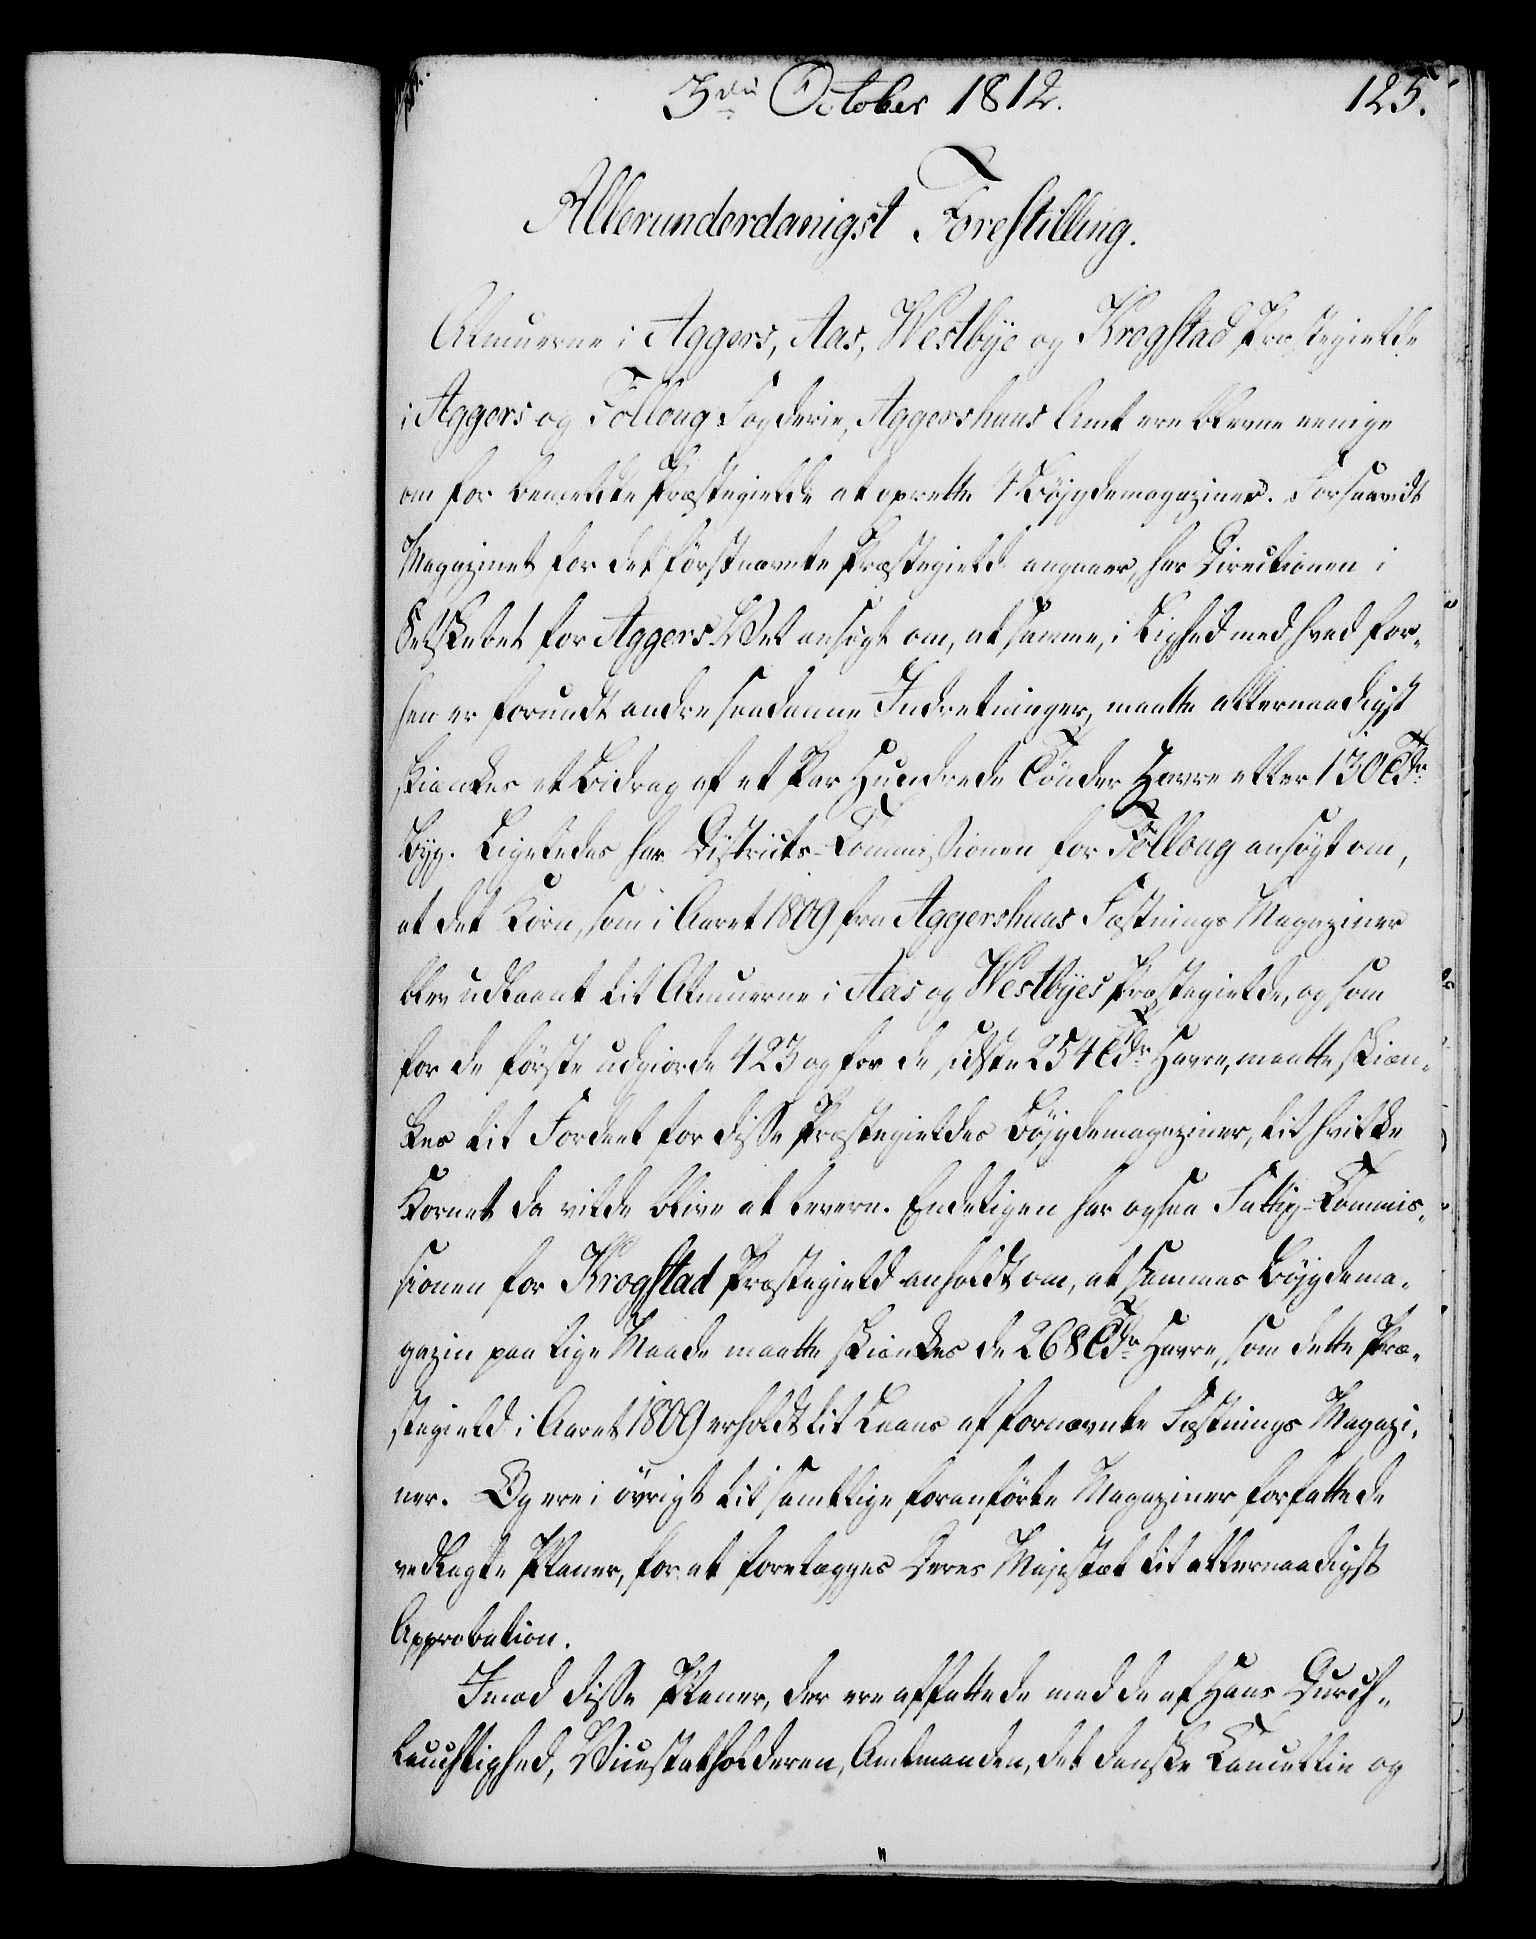 3die October 1812.
125.
Allerunderdanigst Forestilling.
Almuerne i Aggers, Aas, Westbye og Krogstad Præstegielde
i Aggers og Folloug Fogderie, Aggershuus Amt ere blevne eenige
om for bemeldte Præstegielde at oprette 4 Böjgdemagaziner. Forsaavidt
Magazinet for det förstnævnte Præstegield angaaer, har Directionen i
Selskabet for Aggers Vel ansögt om, at samme, i Lighed med hvad for-
hen er forundt andre saadanne Indretninger, maatte allernaadigst
skiænkes et Bidrag af et Par Hundrede Tönder Havre eller 130 Tdr
Byg. Ligeledes har Districts-Commissionen for Folloug ansögt om,
at det Korn, som i Aaret 1809 fra Aggershuus Fæstnings Magaziner
blev udlaant til Almuerne i Aas og Westbyes Præstegielde, og som
for de förste udgiorde 423 og for de sidste 254 Tdr Havre, maatte skiæn-
kes til Fordeel for disse Præstegieldes Böjgdemagaziner, til hvilke
Kornet da vilde blive at levere. Endeligen har ogsaa Fattig-Commis-
sionen for Krogstad Præstegield anholdt om, at sammes Böjgdema-
gazin paa lige Maade maatte skiænkes de 268 Tdr Havre, som dette Præ-
stegield i Aaret 1809 erholdt til Laans af fornævnte Fæstnings Magazi-
ner. Og ere i övrigt til samtlige foranförte Magaziner forfattede
vedlagte Planer, for at forelægges Deres Majestæt til allernaadigst
Approbation.
Imod disse Planer, der ere affattede med de af Hans Durch-
lauchtighed, Vicestatholderen, Amtmanden, det danske Cancellie og